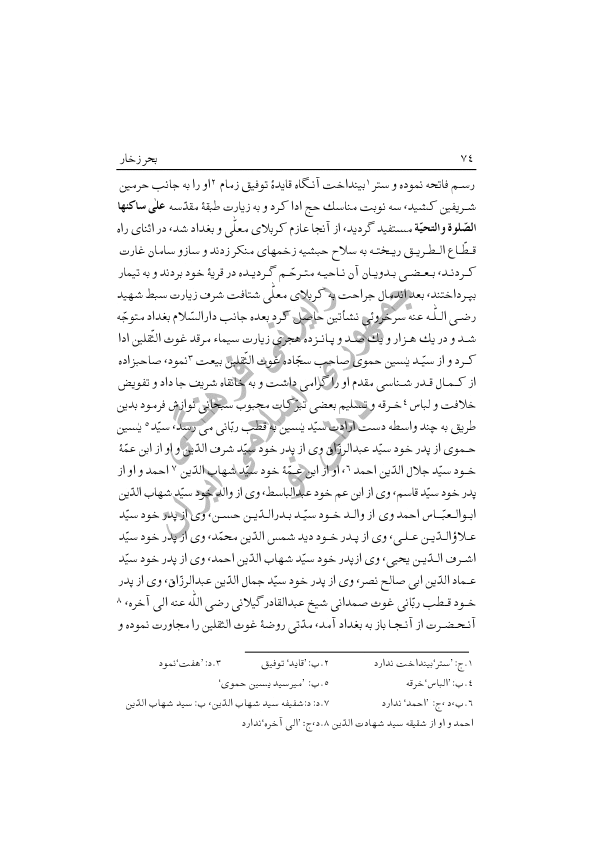 ۷۴ بحر زخار
رسم فاتحه نموده و ستر۱بینداخت آنگاه قایدهٔ توفیق زمام ۲او را به جانب حرمین
شریفین کشید، سه نوبت مناسك حج ادا کرد و به زیارت طبقهٔ مقدّسه علی ساکنها
الصّلوة والتحیّة مستفید گردید، از آنجا عازم کربلای معلّی و بغداد شد، در اثنای راه
قطّاع الطریق ریخته به سلاح حبشیه زخمهای منکر زدند و سازو سامان غارت
کردند، بعضی بدویان آن ناحیه مترحّم گردیده در قریهٔ خود بردند و به تیمار
بپرداختند، بعد اندمال جراحت به کربلای معلّی شتافت شرف زیارت سبط شهید
رضی اللّه عنه سرخروئی نشأتین حاصل کرد بعده جانب دارالسّلام بغداد متوجّه
شد و در یك هزار و یك صد و پانزده هجری زیارت سیماء مرقد غوث الثّقلین ادا
کرد و از سیّد یٰسین حموی صاحب سجّاده غوث الثّقلین بیعت ۳نمود، صاحبزاده
از کمال قدر شناسی مقدم او را گرامی داشت و به خانقاه شریف جا داد و تفویض
خلافت و لباس ۴خرقه و تسلیم بعضی تبرّکات محبوب سبحانی نوازش فرمود بدین
طریق به چند واسطه دست ارادت سیّد یٰسین به قطب ربّانی می رسد، سیّد۵ یٰسین
حموی از پدر خود سیّد عبدالرزّاق وی از پدر خود سیّد شرف الدّین و او از ابن عمّهٔ
خود سیّد جلال الدّین احمد ۶، او از ابن عمّهٔ خود سیّد شهاب الدّین ۷ احمد و او از
پدر خود سیّد قاسم، وی از ابن عم خود عبدالباسط، وی از والد خود سیّد شهاب الدّین
ابوالعبّاس احمد وی از والد خود سیّد بدرالدّین حسن، وی از پدر خود سیّد
علاؤالدّین علی، وی از پدر خود دید شمس الدّین محمّد، وی از پدر خود سیّد
اشرف الدّین یحیی، وی ازپدر خود سیّد شهاب الدّین احمد، وی از پدر خود سیّد
عماد الدّین ابی صالح نصر، وی از پدر خود سیّد جمال الدّین عبدالرزّاق، وی از پدر
خود قطب ربّانی غوث صمدانی شیخ عبدالقادر گیلانی رضی اللّه عنه الی آخره، ۸
آنحضرت از آنجا باز به بغداد آمد، مدّتی روضهٔ غوث الثقلین را مجاورت نموده و
۱.ج: ’ستر‘بینداخت ندارد ۲.ب: ’قاید‘ توفیق ۳.د: ’هفت‘نمود
۴.ب: ’الباس‘خرقه ۵.ب: ’میرسید یٰسین حموی‘
۶.ب،د ،ج: ’احمد‘ ندارد ۷.د: د:شفیفه سید شهاب الدّین، ب: سید شهاب الدّین
احمد و او از شقیقه سید شهادت الدّین ۸.د،ج: ’الی آخره‘ندارد
جمهوری اسلامی ایران
رایزنی فرهنگی
دهلی نو